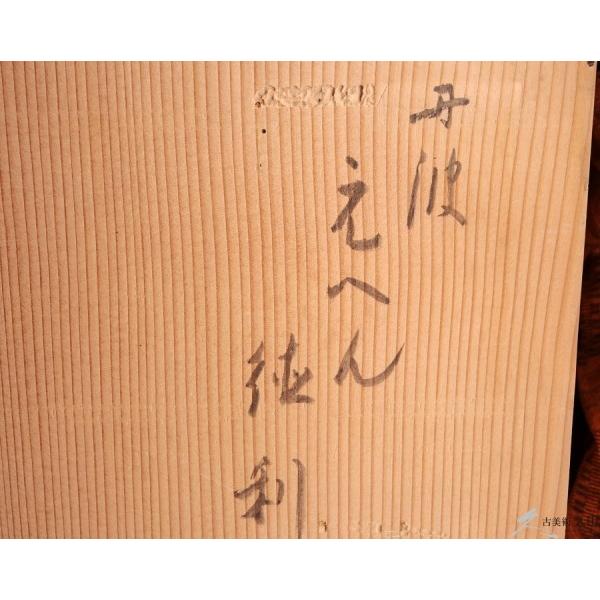 丹波
えへん
徳利
古美術